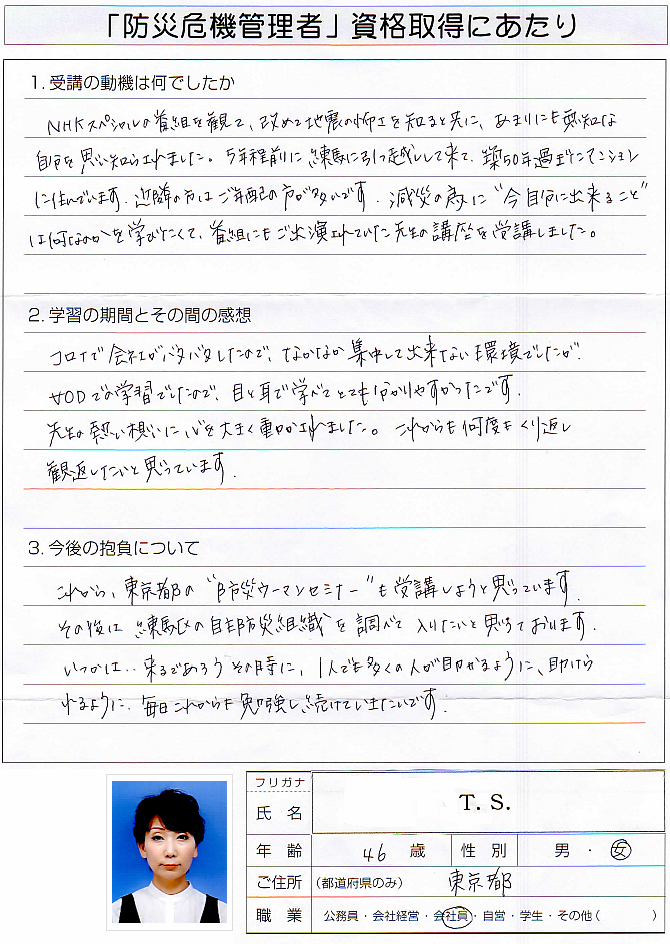 「防災危機管理者」資格取得にあたり
1. 受講の動機は何でしたか
NHKスペシャルの番組を観て、改めて地震の怖さを知ると共に、あまりにも無知な
自分を思い知らされました。5年程前に練馬に引っ越しして来て、築50年過ぎたマンション
に住んでいます。近隣の方はご年配の方が多いです。減災の為に“今自分に出来ること”
は何なのかを学びたくて、番組にもご出演されていた先生の講座を受講しました。
2. 学習の期間とその間の感想
コロナで会社がバタバタしたので、なかなか集中して出来ない環境でしたが、
VODでの学習でしたので、目と耳で学べてとても分かりやすかったです。
先生の熱い想いに心を大きく動かされました。これからも何度もくり返し
観返したいと思っています。
3. 今後の抱負について
これから、東京都の“防災ウーマンセミナー”も受講しようと思っています。
その後は練馬区の自主防災組織を調べて入りたいと思っております。
いつかは‥来るであろうその時に、1人でも多くの人が助かるように、助けら
れるように、毎日これからも勉強し続けていきたいです。
フリガナ
氏 名 T. S.
年 齢 46 歳 性 別 男 ・ 女
ご住所 (都道府県のみ) 東京都
職 業 公務員・会社経営・会社員・自営・学生・その他( )